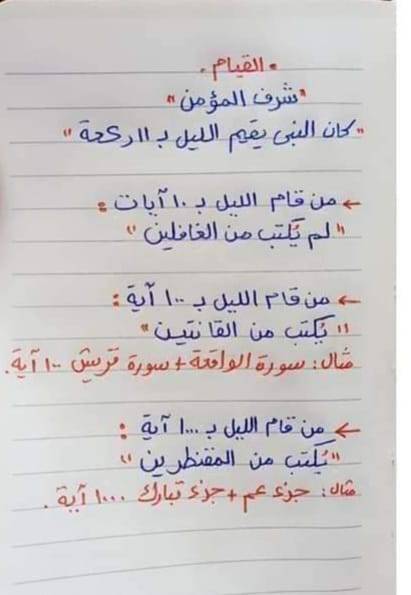 • القيام •
"شرف المؤمن"
"كان النبي يقيم الليل بـ ١١ ركعة"
← من قام الليل بـ ١٠ آيات :
"لم يُكتب من الغافلين"
← من قام الليل بـ ١٠٠ آية :
"يُكتب من القانتين"
مثال : سورة الواقعة + سورة قريش ١٠٠ آية.
← من قام الليل بـ ١٠٠٠ آية :
"يُكتب من المقنطرين"
مثال : جزء عم + جزء تبارك ١٠٠٠ آية .